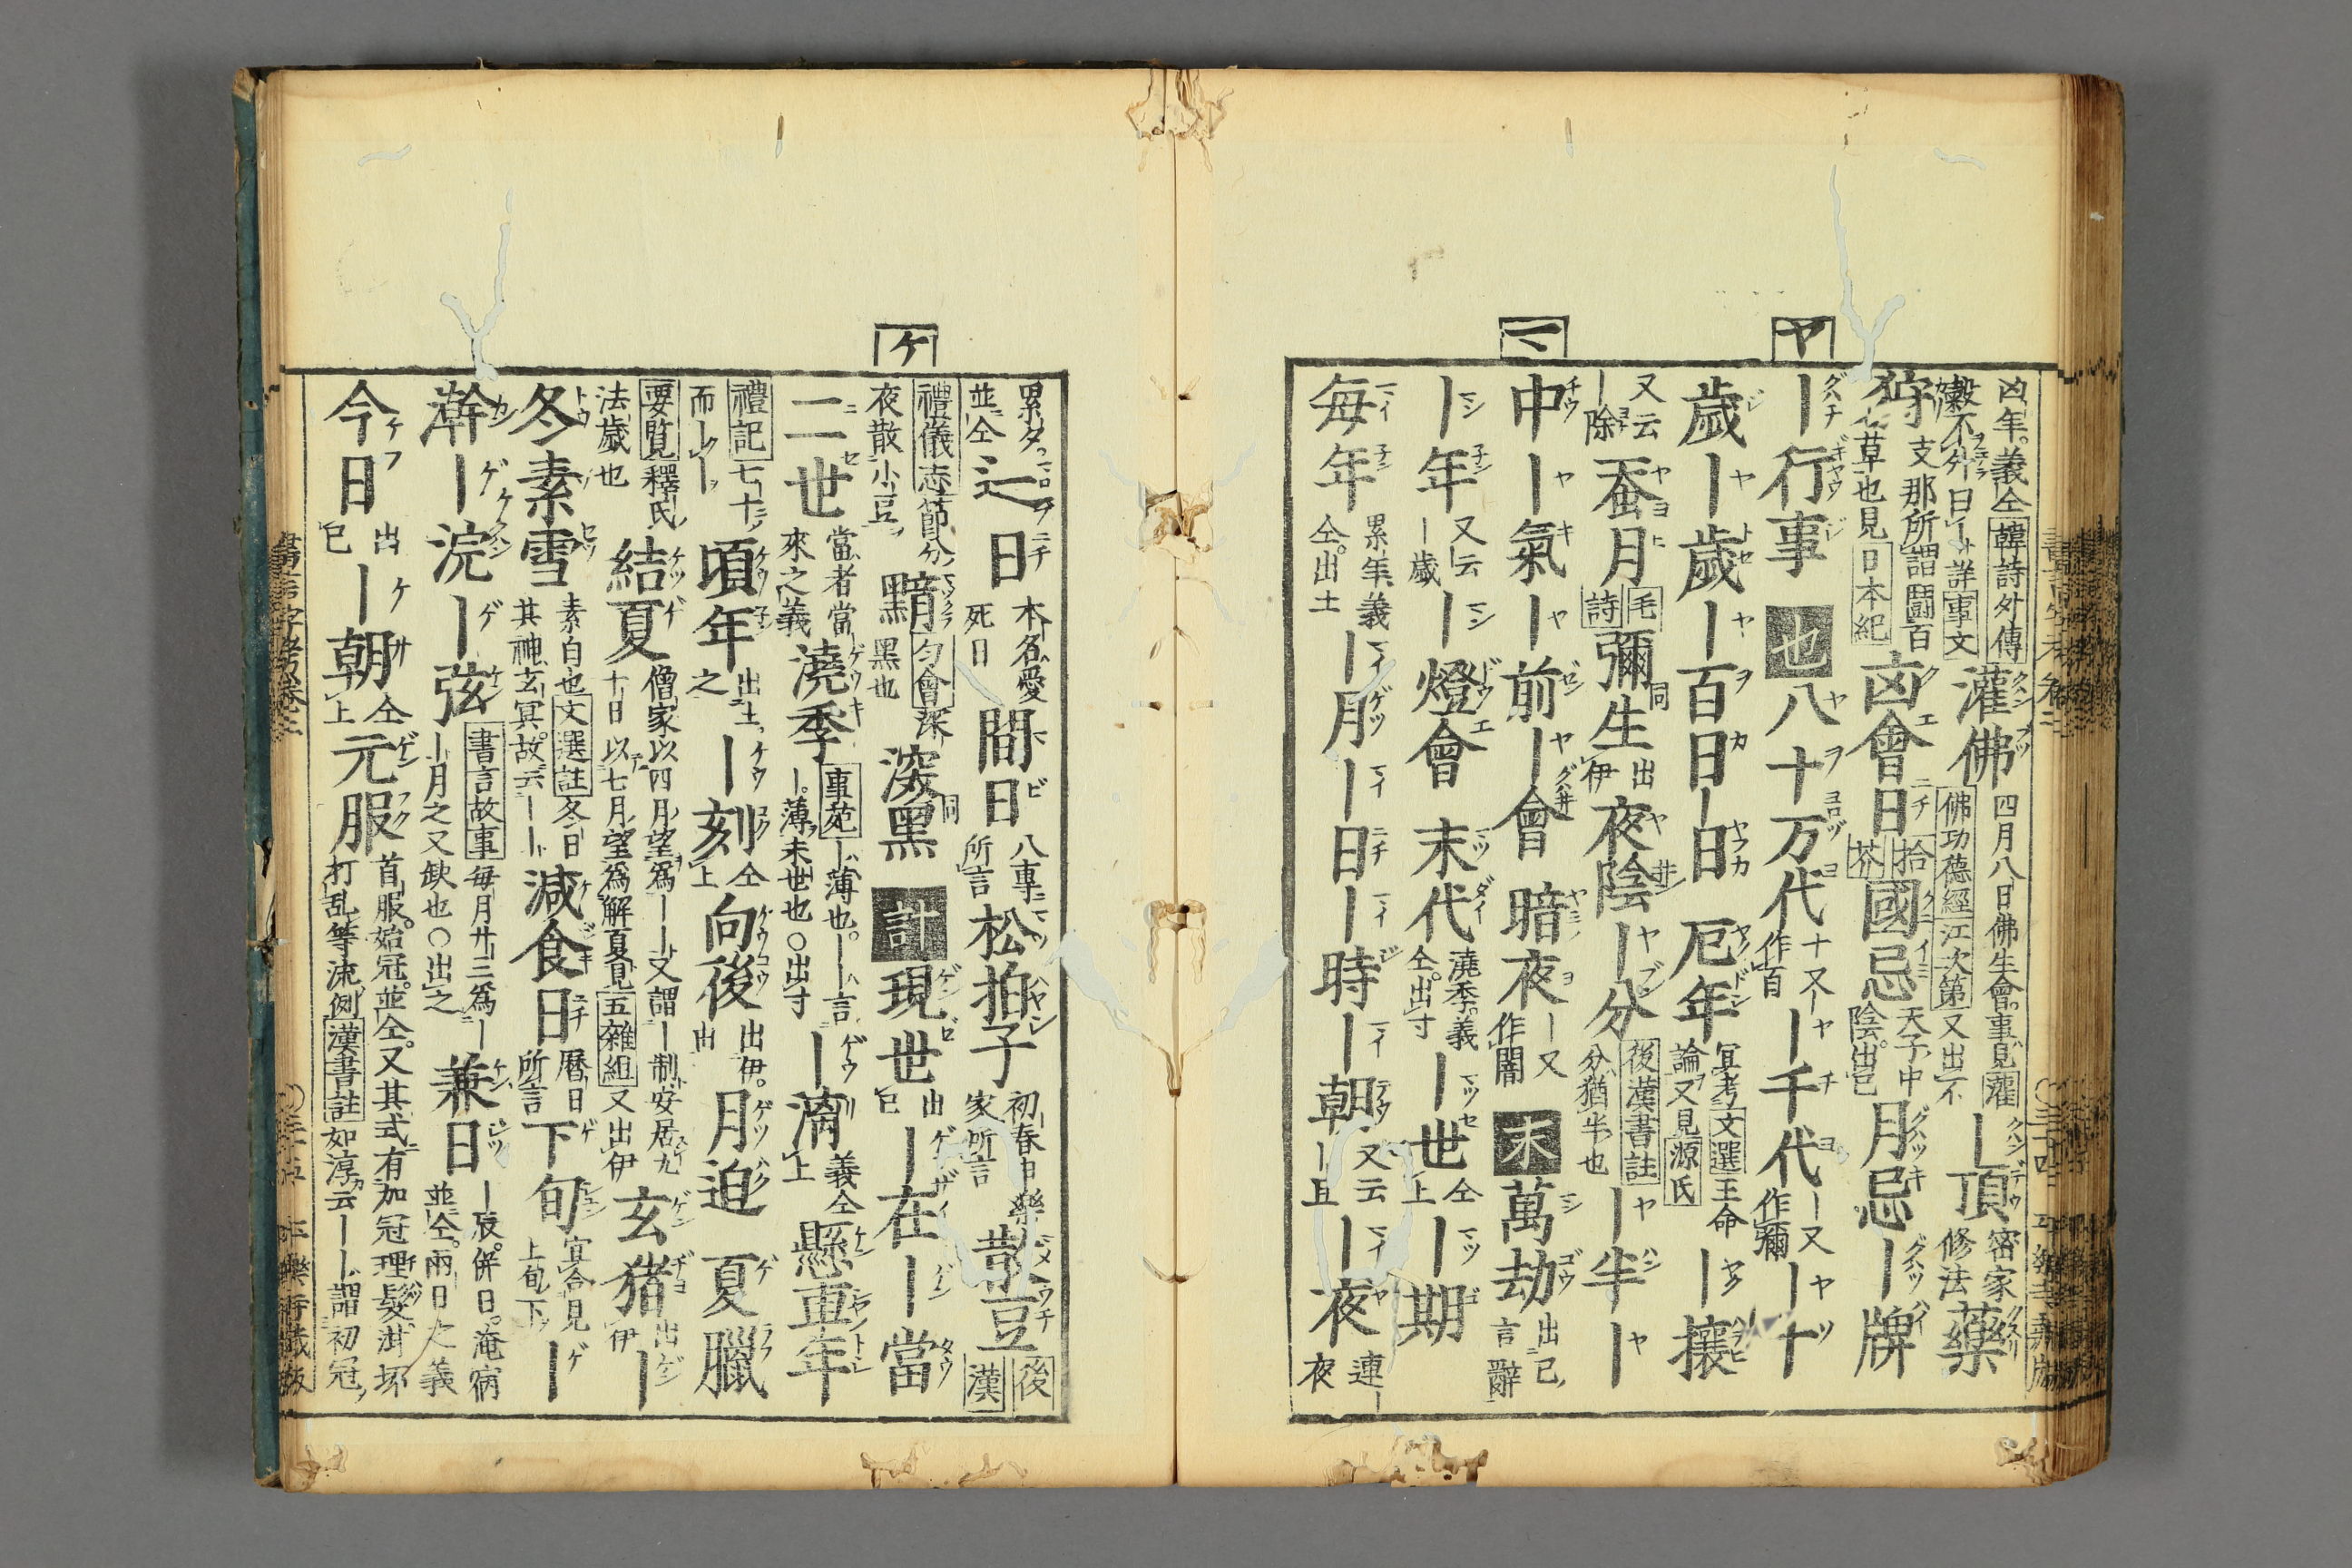 ヤ
マ
凶年。義仝韓詩外傳灌佛四月八日佛生會。事見灌佛功德經江次第又出不|頂密家修法藥
狩支那所謂鬪百草也見日本紀凶會日拾芥國忌天子中陰。出巳月忌|牌
|行事 也八十万代十又|作百|千代|又作彌|十
歲|歲|百日|日 厄年冥考文選王命論又見源氏|攘
又云|除蚕月毛詩彌生同出伊夜陰|分後漢書註分猶半也|半|
中|氣|前|會 暗夜|又作闇 末萬劫出已言辭
|年又云|歲|燈會 末代澆季。義仝。出寸|世仝上|期
每年累年義仝。出土|月|日|時|朝又云|旦|夜連|夜
ケ
累夕並仝辶日本名愛死日間日八專所言松拍子初春申樂家所言散豆後漢
禮儀志節分夜散小豆黯匀會深黑也深黑同 計現世出巳|在|當
二世當者當來之義澆季事苑|薄也。||言|。薄末世也○出寸|漓義仝上懸車年
禮記七十而||頃年出土之|刻仝上向後出伊。出月迫 夏臘
要覽釋氏法歲也結夏僧家以四月望爲||又謂|制安居九十日以七月望爲解夏見五雜組又出伊玄猪出伊|
冬素雪素白也文選註冬日其神玄冥。故云||減食日曆日所言下旬冥合見上旬下|
澣|浣|弦書言故事每月廿三爲||月之又缺也○出之兼日|辰。併日。淹病並仝。兩日之義
今日出巳|朝仝上元服首服。始冠。並仝。又其式有加冠理髮泔坏打乱等流例漢書註如淳云||謂初冠